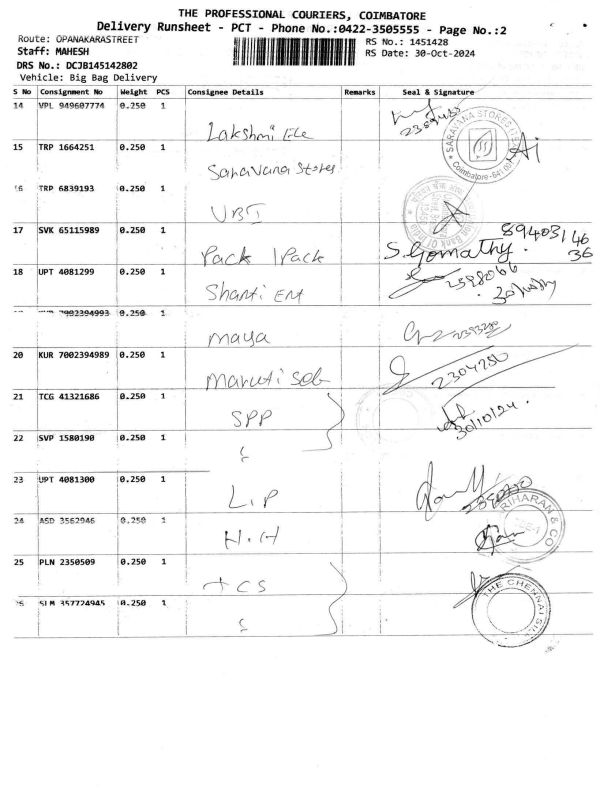 THE PROFESSIONAL COURIERS, COIMBATORE
Delivery Runsheet - PCT - Phone No.:0422-3505555 - Page No.:2
Route: OPANAKARASTREET
RS No.: 1451428
Staff: MAHESH
RS Date: 30-Oct-2024
DRS No.: DCJB145142802
Vehicle: Big Bag Delivery
S No Consignment No Weight PCS Consignee Details Remarks Seal & Signature
14 VPL 949607774 0.250 1
Lakshmi Ele
SARAVANA STORES
Coimbatore-641 001
15 TRP 1664251 0.250 1
Saravana Stores
16 TRP 6839193 0.250 1
UBI
17 SVK 65115989 0.250 1
Pack 1Pack S. Gomathy. 8940314636
18 UPT 4081299 0.250 1
Shanti Ent 2598066
7002394993 0.250 1
maya
20 KUR 7002394989 0.250 1
Maruti Sob 2304250
21 TCG 41321686 0.250 1
SPP 30/10/24.
22 SVP 1580190 0.250 1
23 UPT 4081300 0.250 1
L.P
24 ASD 3562946 0.250 1
H.H
RIHARAN & CO
25 PLN 2350509 0.250 1
TCS
THE CHENNAI SILK
26 SLM 357724945 0.250 1